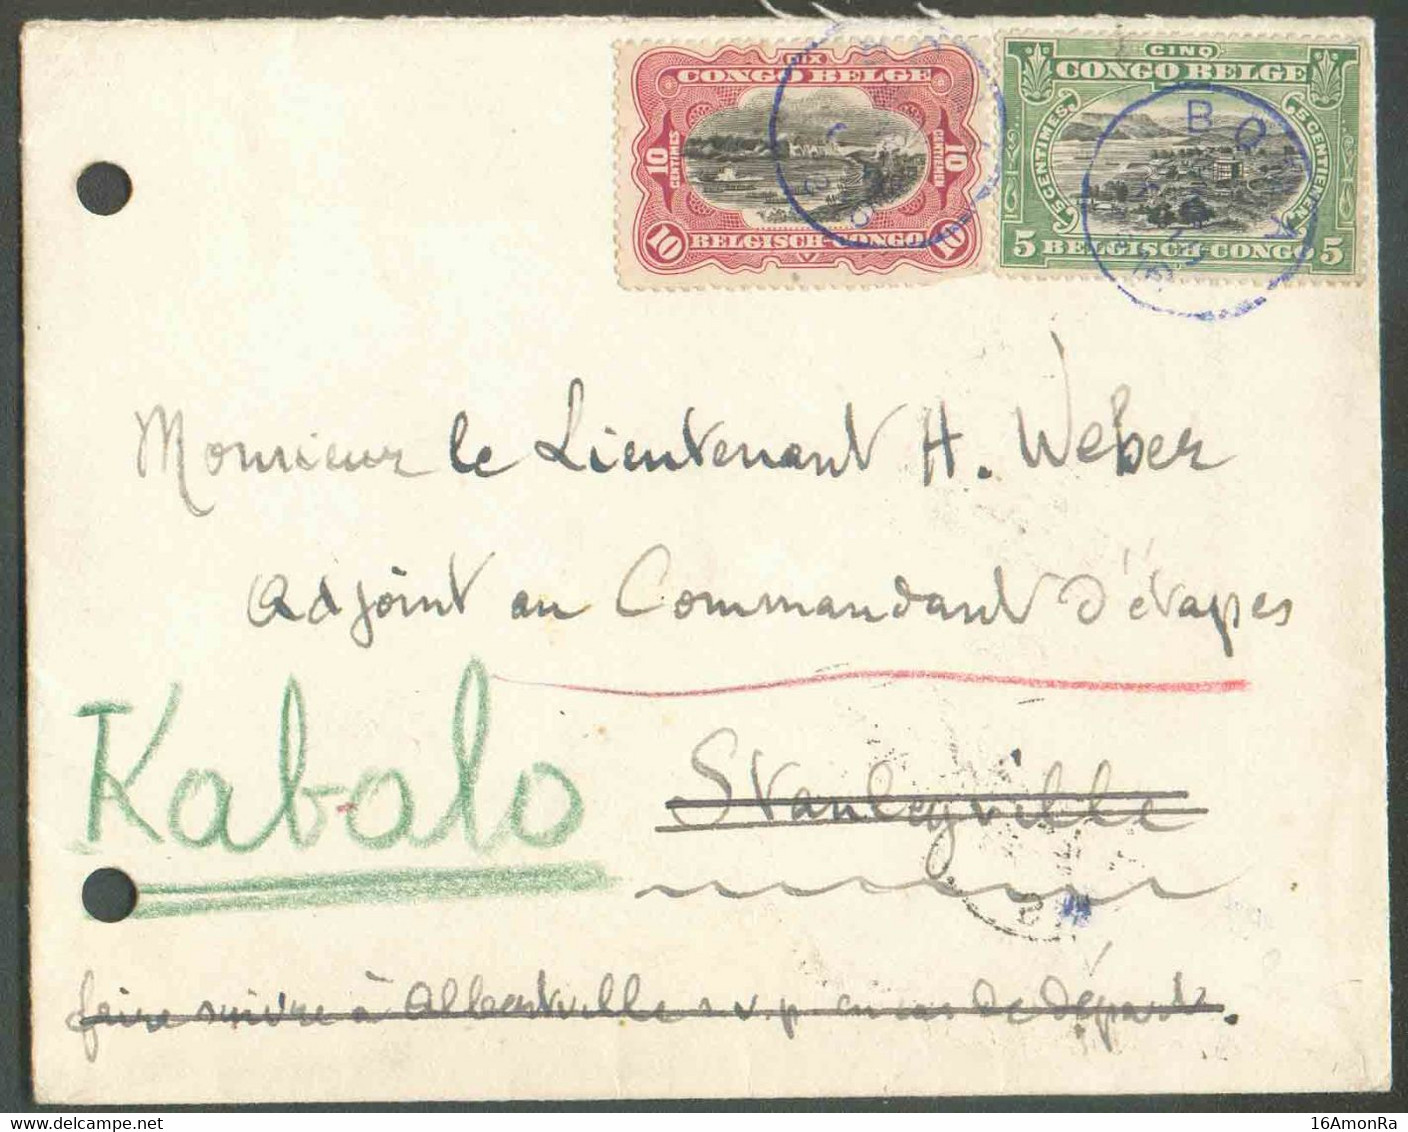 DIX
CONGO BELGE
10 CENTIMES
10 CENTIEMEN
10 BELGISCH-CONGO 10
CINQ
CONGO BELGE
5 CENTIMES.
5 CENTIEMEN.
5 BELGISCH-CONGO 5
BOMA
Monsieur le Lieutenant H. Weber
Adjoint au Commandant d'étapes
Kabalo
Stanleyville
faire suivre à Albertville s.v.p en cas de départ.
16AmonRa